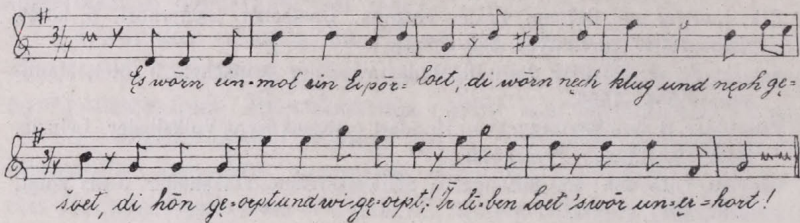 Es wōrn ein-mol ein Eipōr= loet, di wōrn nęch klug und nęch gę=
soet, di hōn gę-orpt und wi-gę-orpt! Īr li-ben Loet 'swōr un-ei=hort!